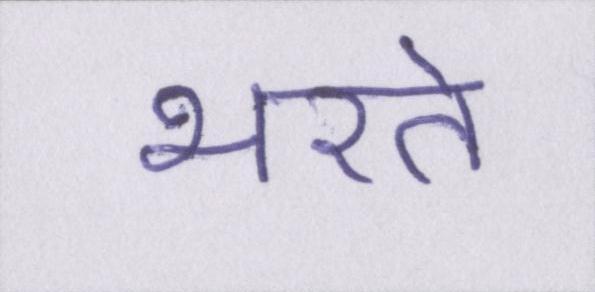 भरते